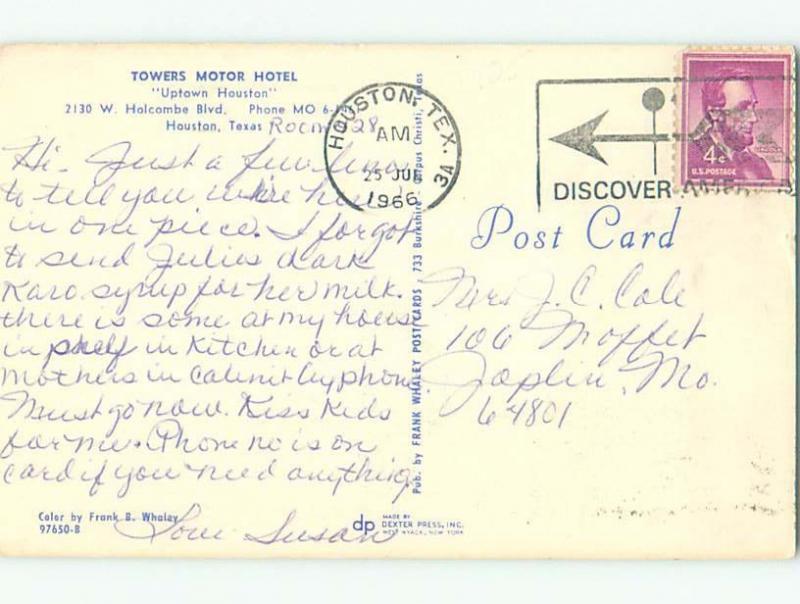 TOWERS MOTOR HOTEL
"Uptown Houston"
2130 W. Holcombe Blvd. Phone MO 6-
Houston, Texas Room 28
Hi. Just a few lines
to tell you we're here
in one piece. I forgot
to send Julies dark
Karo syrup for her milk.
there is some at my house
in shelf in Kitchen or at
Mothers in Cabinit by phone.
Must go now. Kiss kids
for me. Phone no is on
card if you need anything.
Love Susan
Color by Frank B. Whaley
97650-B
Pub. by FRANK WHALEY POST CARDS, 733 Burkshire, Corpus Christi, Texas
dp MADE BY
DEXTER PRESS, INC.
WEST NYACK, NEW YORK
HOUSTON, TEX.
AM
25 JUN
1966
3A
DISCOVER AMERICA
4¢
U.S. POSTAGE
Post Card
Mrs J. C. Cole
106 Moffet
Joplin, Mo.
64801